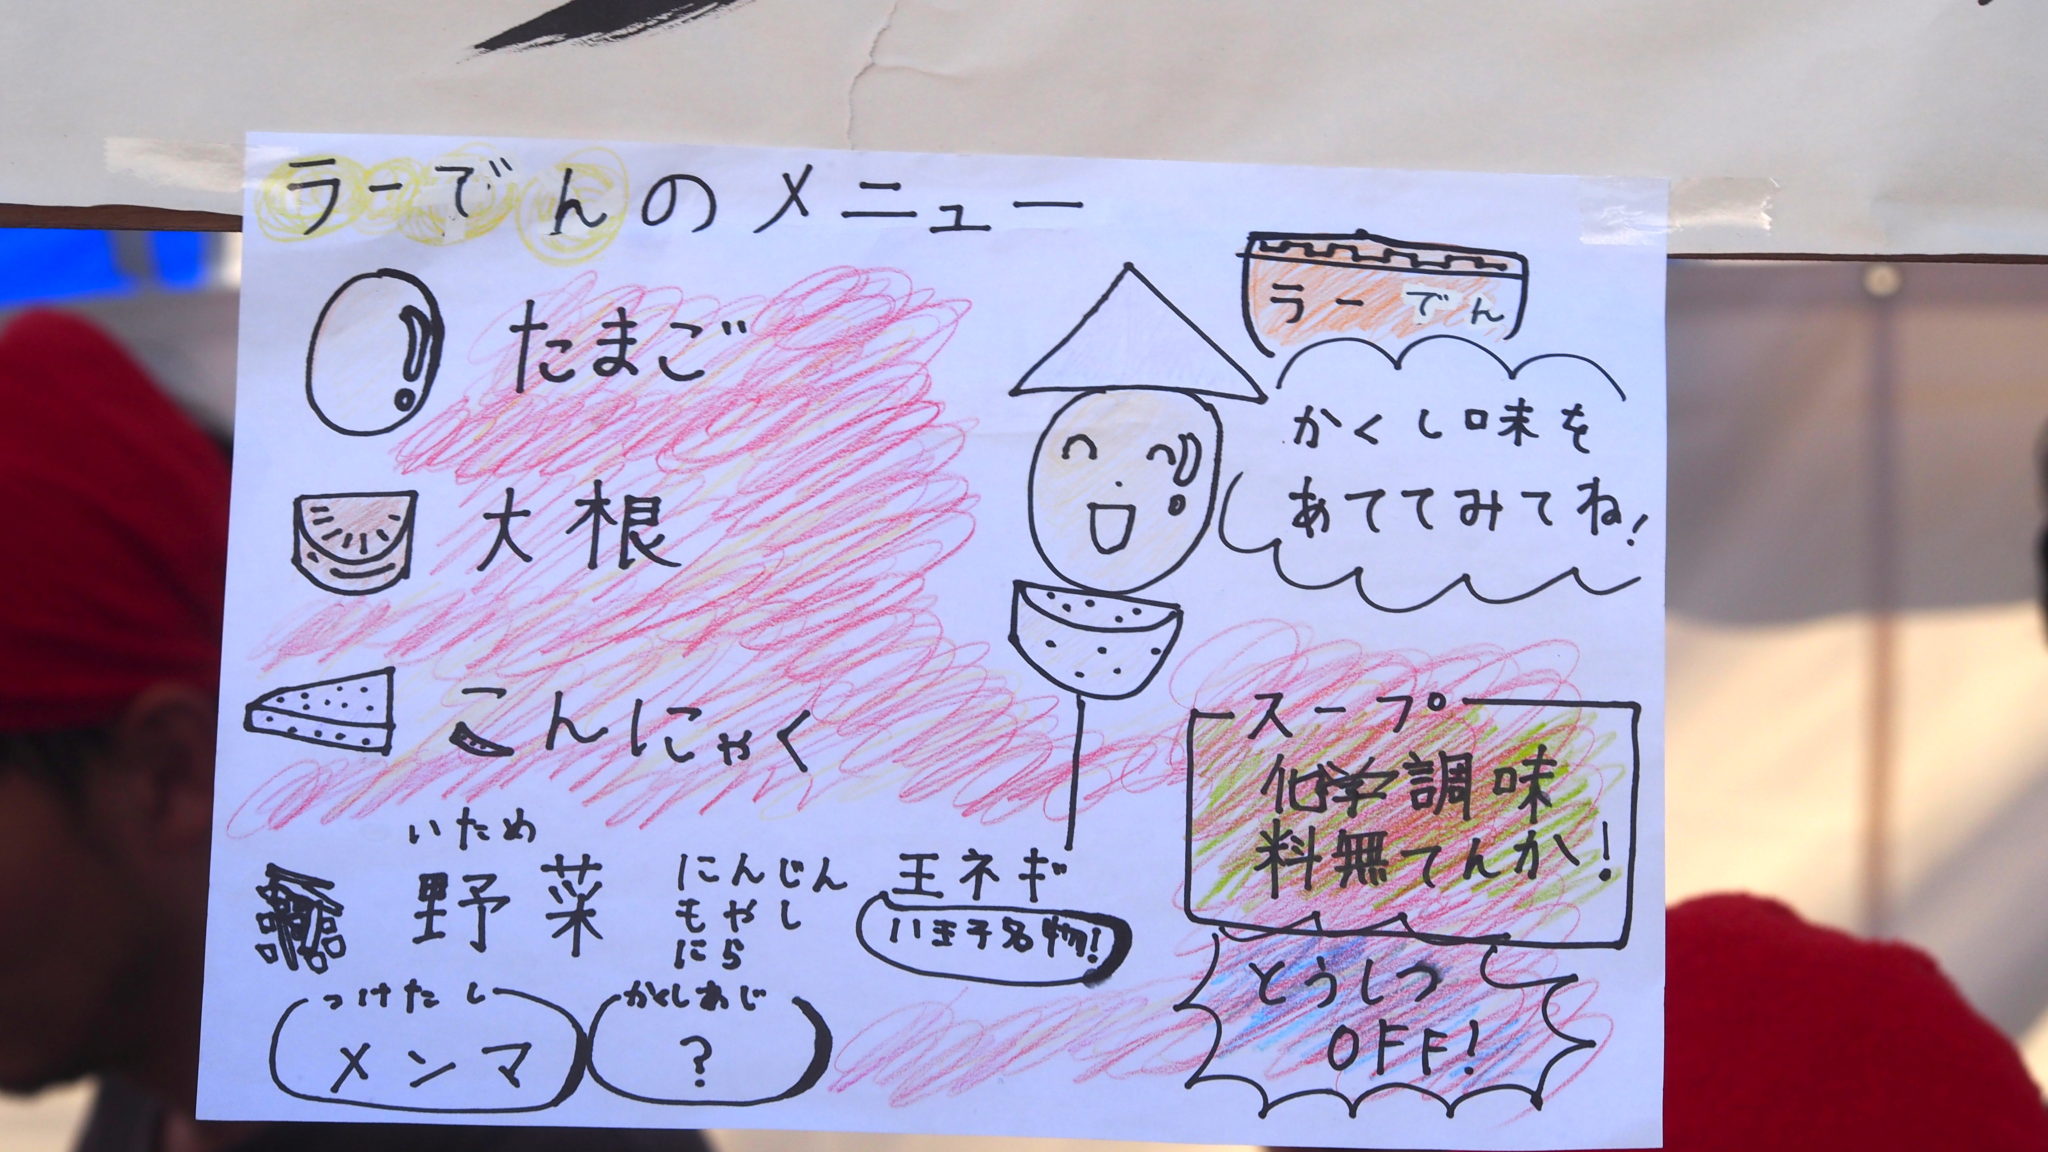 ラーでんのメニュー
ラーでん
たまご
かくし味を
あててみてね!
大根
こんにゃく
スープ
化学調味
料無てんか!
いため
野菜
にんじん
もやし
にら
玉ネギ
八王子名物!
とうしつ
OFF!
つけたし
メンマ
かくしあじ
?